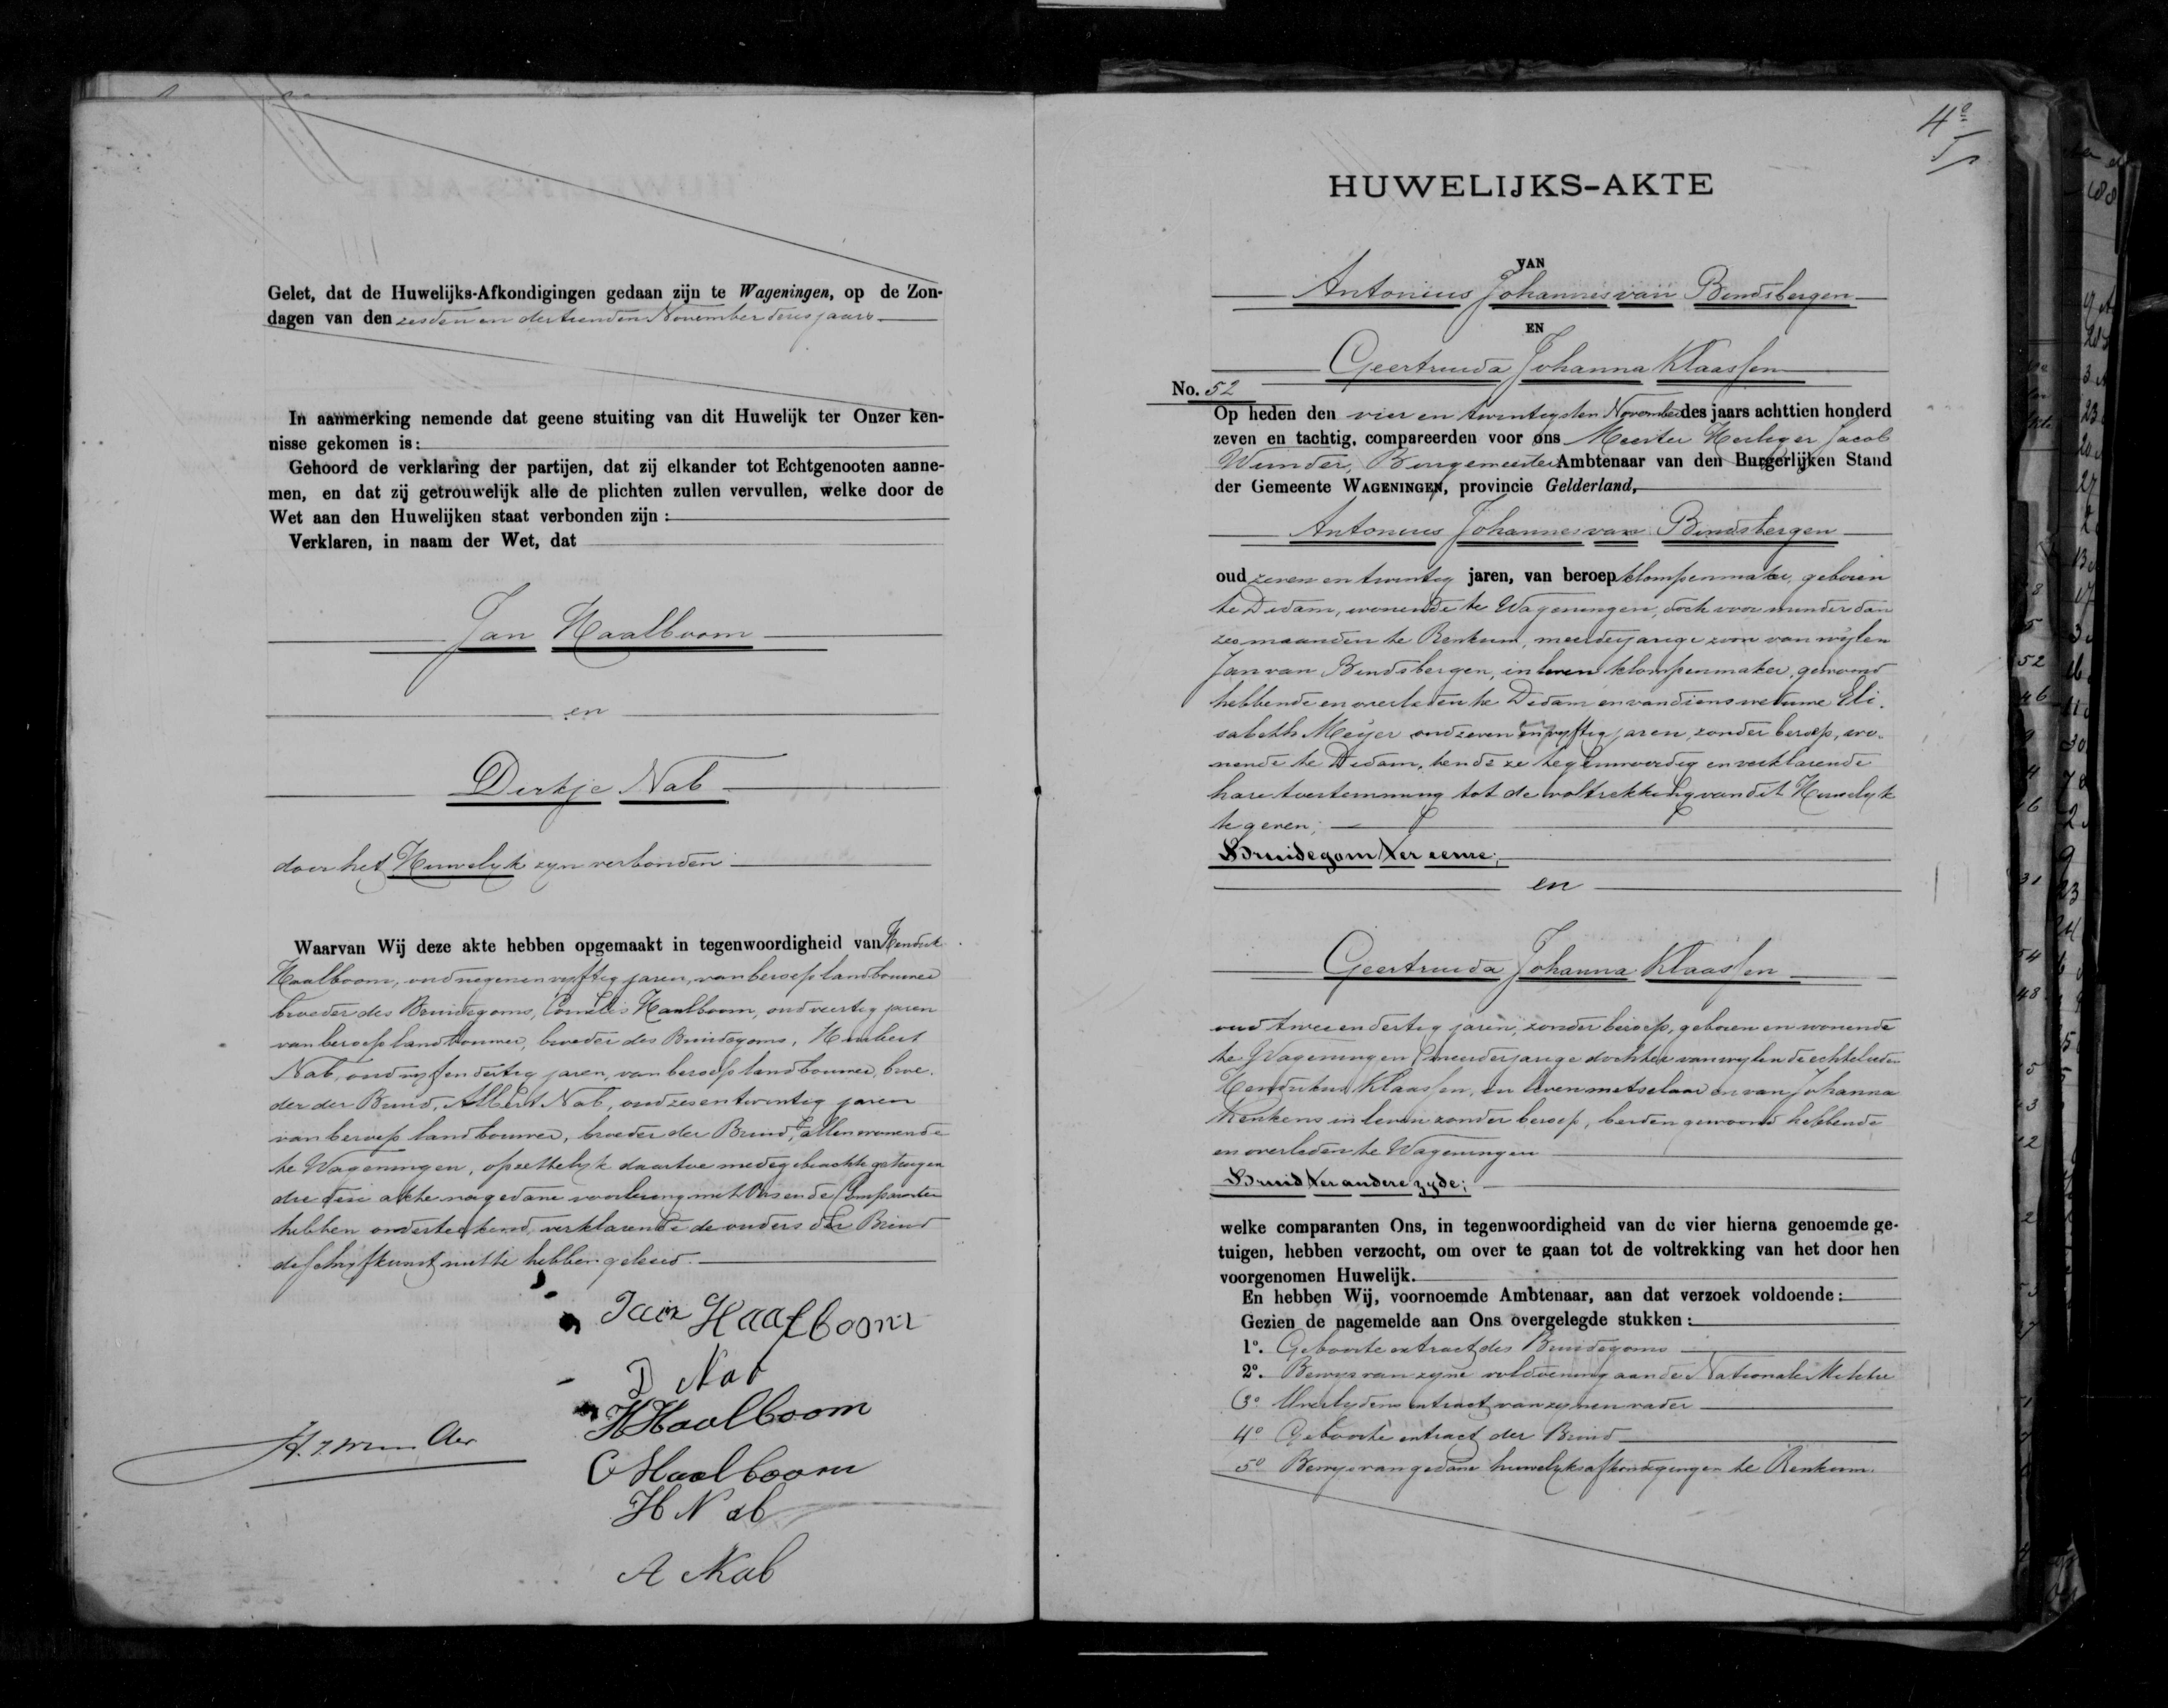 Gelet, dat de Huwelijks-Afkondigingen gedaan zijn te Wageningen, op de Zon-
dagen van den zesden en dertienden November dezes jaars
In aanmerking nemende dat geene stuiting van dit Huwelijk ter Onzer ken-
nisse gekomen is:
Gehoord de verklaring der partijen, dat zij elkander tot Echtgenooten aanne-
men, en dat zij getrouwelijk alle de plichten zullen vervullen, welke door de
Wet aan den Huwelijken staat verbonden zijn:
Verklaren, in naam der Wet, dat
Jan Haalboom
en
Dirkje Nab
door het Huwelijk zijn verbonden
Waarvan Wij deze akte hebben opgemaakt in tegenwoordigheid van Hendrik
Haalboom, oud negenenvijftig jaren, van beroep landbouwer
broeder des Bruidegoms, Cornelis Haalboom, oud veertig jaren
van beroep landbouwer, broeder des Bruidegoms, Huibert
Nab, oud vijfendertig jaren, van beroep landbouwer, broe-
der der Bruid, Albert Nab, oud zesentwintig jaren
van beroep landbouwer, broeder der Bruid, allen wonende
te Wageningen, opzettelijk daartoe medegebrachte getuigen
die deze akte na gedane voorlezing met Ons en de Comparanten
hebben onderteekend, verklarende de ouders der Bruid
de schrijfkunst niet te hebben geleerd.
Jan Haalboom
D Nab
H Haalboom
H. J. Wunder
C Haalboom
H Nab
A Nab
HUWELIJKS-AKTE
VAN
Antonius Johannes van Bindsbergen
EN
Geertruida Johanna Klaassen
No. 52
Op heden den vier en twintigsten November des jaars achttien honderd
zeven en tachtig, compareerden voor ons Meester Herliger Jacob
Wunder, Burgemeester Ambtenaar van den Burgerlijken Stand
der Gemeente WAGENINGEN, provincie Gelderland,
Antonius Johannes van Bindsbergen
oud zeven en twintig jaren, van beroep klompenmaker, geboren
te Didam, wonende te Wageningen, doch voor minder dan
zes maanden te Renkum, meerderjarige zoon van wijlen
Jan van Bindsbergen, in leven klompenmaker, gewoond
hebbende en overleden te Didam en van diens weduwe Eli-
sabeth Meijer oud zeven en vijftig jaren, zonder beroep, wo-
nende te Didam, ten deze tegenwoordig en verklarende
hare toestemming tot de voltrekking van dit Huwelijk
te geven;
Bruidegom ter eenre;
en
Geertruida Johanna Klaassen
oud tweeendertig jaren, zonder beroep, geboren en wonende
te Wageningen, meerderjarige dochter van wijlen de echtelieden
Hendrikus Klaassen, in leven metselaar en van Johanna
Renkens in leven zonder beroep, beiden gewoond hebbende
en overleden te Wageningen
Bruid ter andere zijde;
welke comparanten Ons, in tegenwoordigheid van de vier hierna genoemde ge-
tuigen, hebben verzocht, om over te gaan tot de voltrekking van het door hen
voorgenomen Huwelijk.
En hebben Wij, voornoemde Ambtenaar, aan dat verzoek voldoende:
Gezien de nagemelde aan Ons overgelegde stukken:
1o. Geboorte extract des Bruidegoms
2o. Bewijs van zijne voldoening aan de Nationale Militie
3o Overlijdens extract van zijnen vader
4o Geboorte extract der Bruid
5o Bewijs van gedane huwelijksafkondigingen te Renkum.